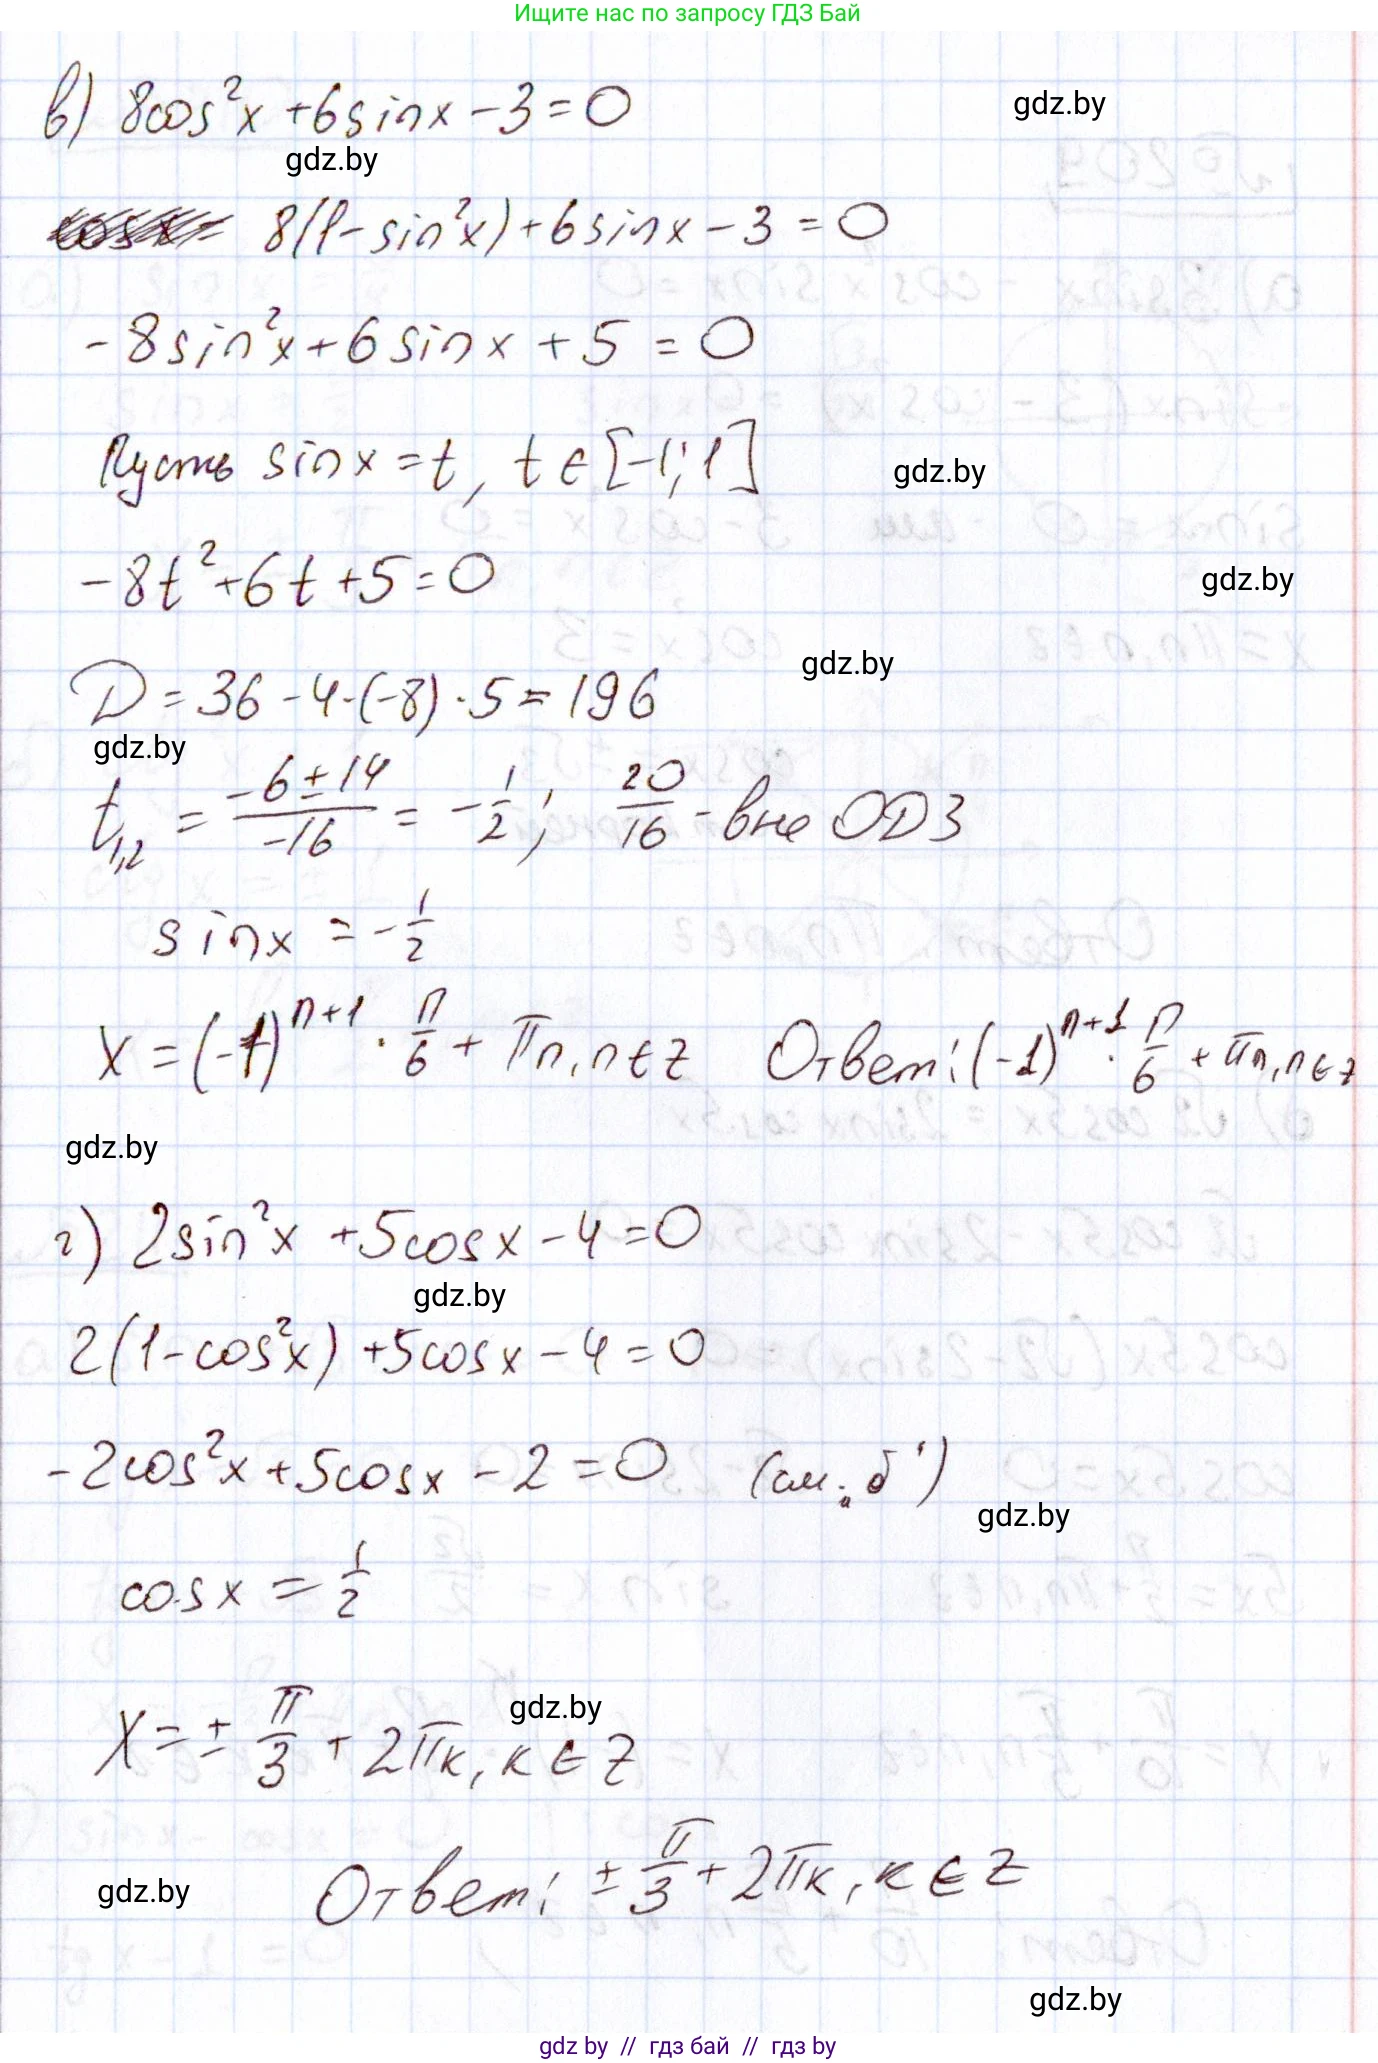 Ищите нас по запросу ГДЗ Бай
в) 8cos²x + 6sinx - 3 = 0
gdz.by
gdz.by
8(1 - sin²x) + 6sinx - 3 = 0
-8sin²x + 6sinx + 5 = 0
Пусть sinx = t, t ∈ [-1; 1]
gdz.by
-8t² + 6t + 5 = 0
gdz.by
gdz.by
D = 36 - 4·(-8)·5 = 196
gdz.by
t₁,₂ = (-6 ± 14)/(-16) = -1/2; 20/16 - вне ОДЗ
sinx = -1/2
x = (-1)ⁿ⁺¹ · π/6 + πn, n ∈ Z Ответ: (-1)ⁿ⁺¹ · π/6 + πn, n ∈ Z
gdz.by
г) 2sin²x + 5cosx - 4 = 0
gdz.by
2(1 - cos²x) + 5cosx - 4 = 0
-2cos²x + 5cosx - 2 = 0 (см. „б')
gdz.by
cosx = 1/2
gdz.by
x = ± π/3 + 2πк, к ∈ Z
Ответ: ± π/3 + 2πк, к ∈ Z
gdz.by
gdz.by
gdz.by // гдз бай // гдз by